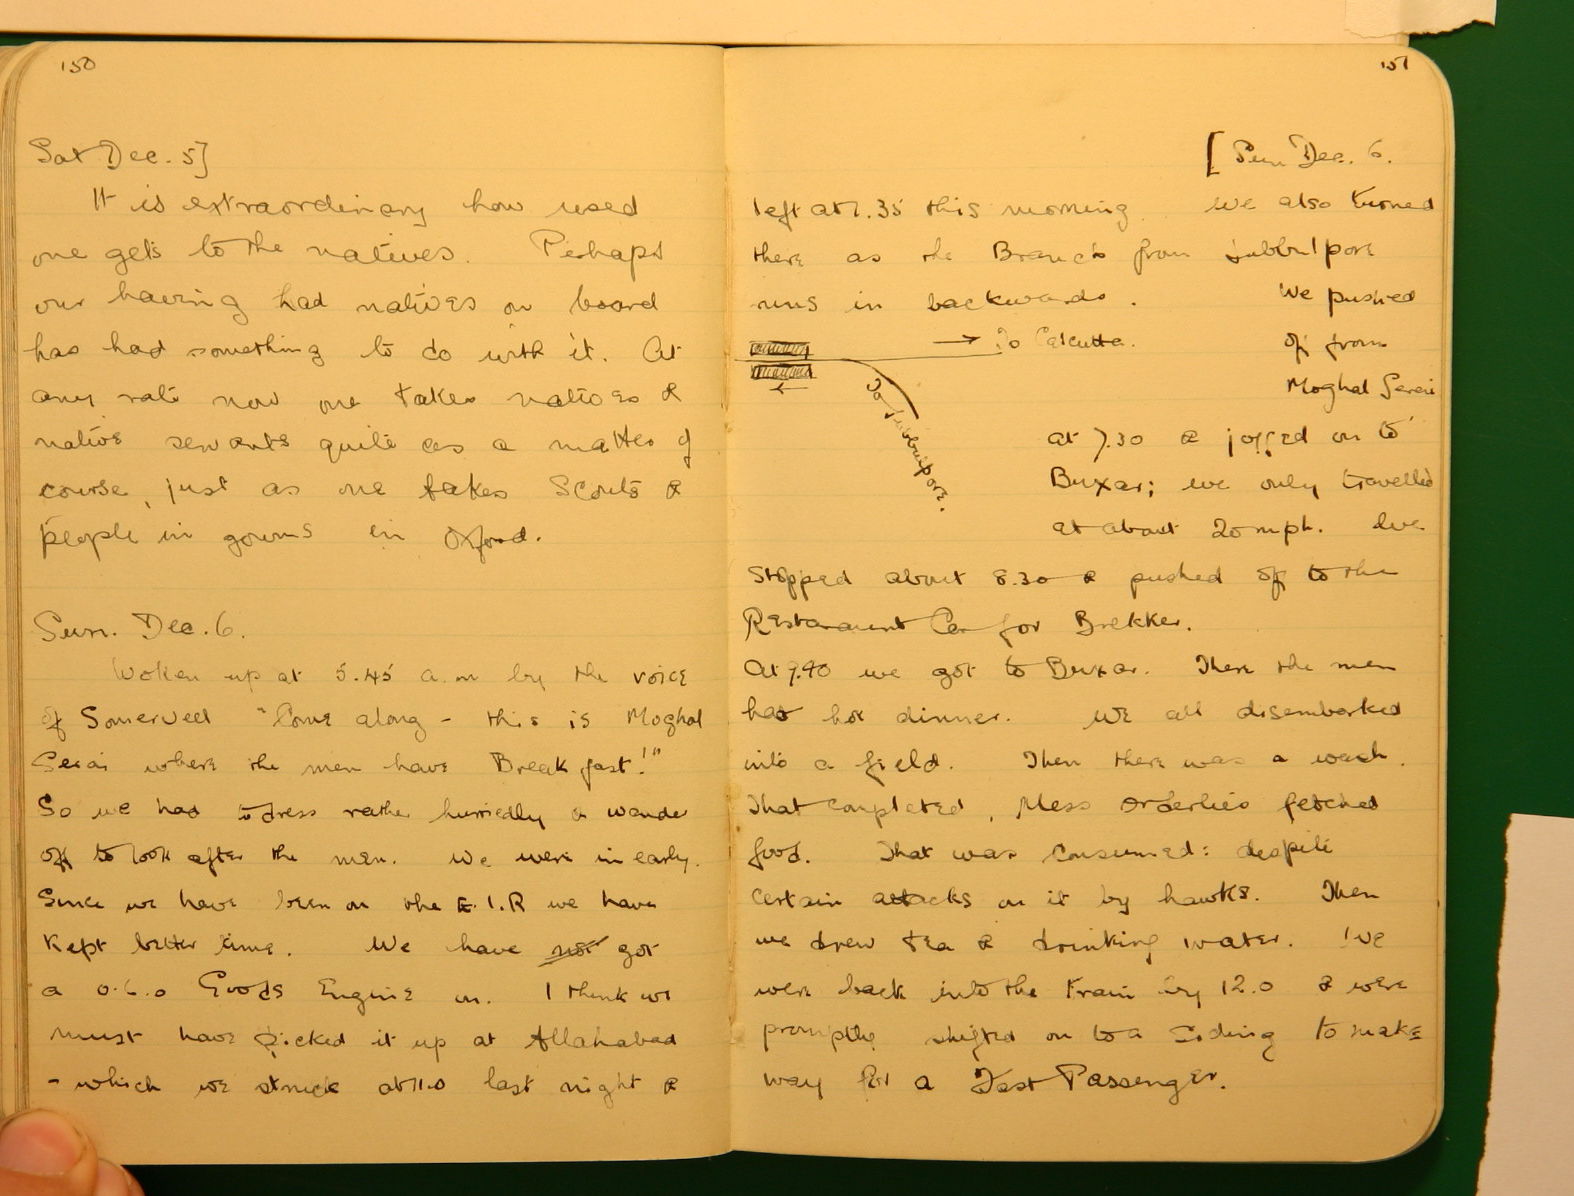 150
Sat Dec. 5]
It is extraordinary how used
one gets to the natives. Perhaps
our having had natives on board
has had something to do with it. At
any rate now one takes natives &
native servants quite as a matter of
course, just as one takes Scouts &
people in gowns in Oxford.
Sun. Dec. 6.
Woken up at 5.45 a.m by the voice
of Somervell "Come along - this is Moghal
Serai where the men have Breakfast!"
So we had to dress rather hurriedly & wander
off to look after the men. We were in early.
Since we have been on the E.I.R we have
kept better time. We have not got
a 0.6.0 Goods Engine on. I think we
must have picked it up at Allahabad
- which we struck at 11.0 last night &
151
[Sun Dec. 6.
left at 1.35 this morning. We also turned
there as the Branch from Jubbulpore
runs in backwards. We pushed
→ To Calcutta.
off from
Moghal Serai
To Jubbulpore.
at 7.30 & jogged on to
Buxar; we only travelled
at about 20 mph. We
stopped about 8.30 & pushed off to the
Restaurant Car for Brekker.
At 9.40 we got to Buxar. There the men
had hot dinner. We all disembarked
into a field. Then there was a wash.
That completed, Mess Orderlies fetched
food. That was consumed: despite
certain attacks on it by hawks. Then
we drew tea & drinking water. We
were back into the train by 12.0 & were
promptly shifted on to a Siding to make
way for a Fast Passenger.